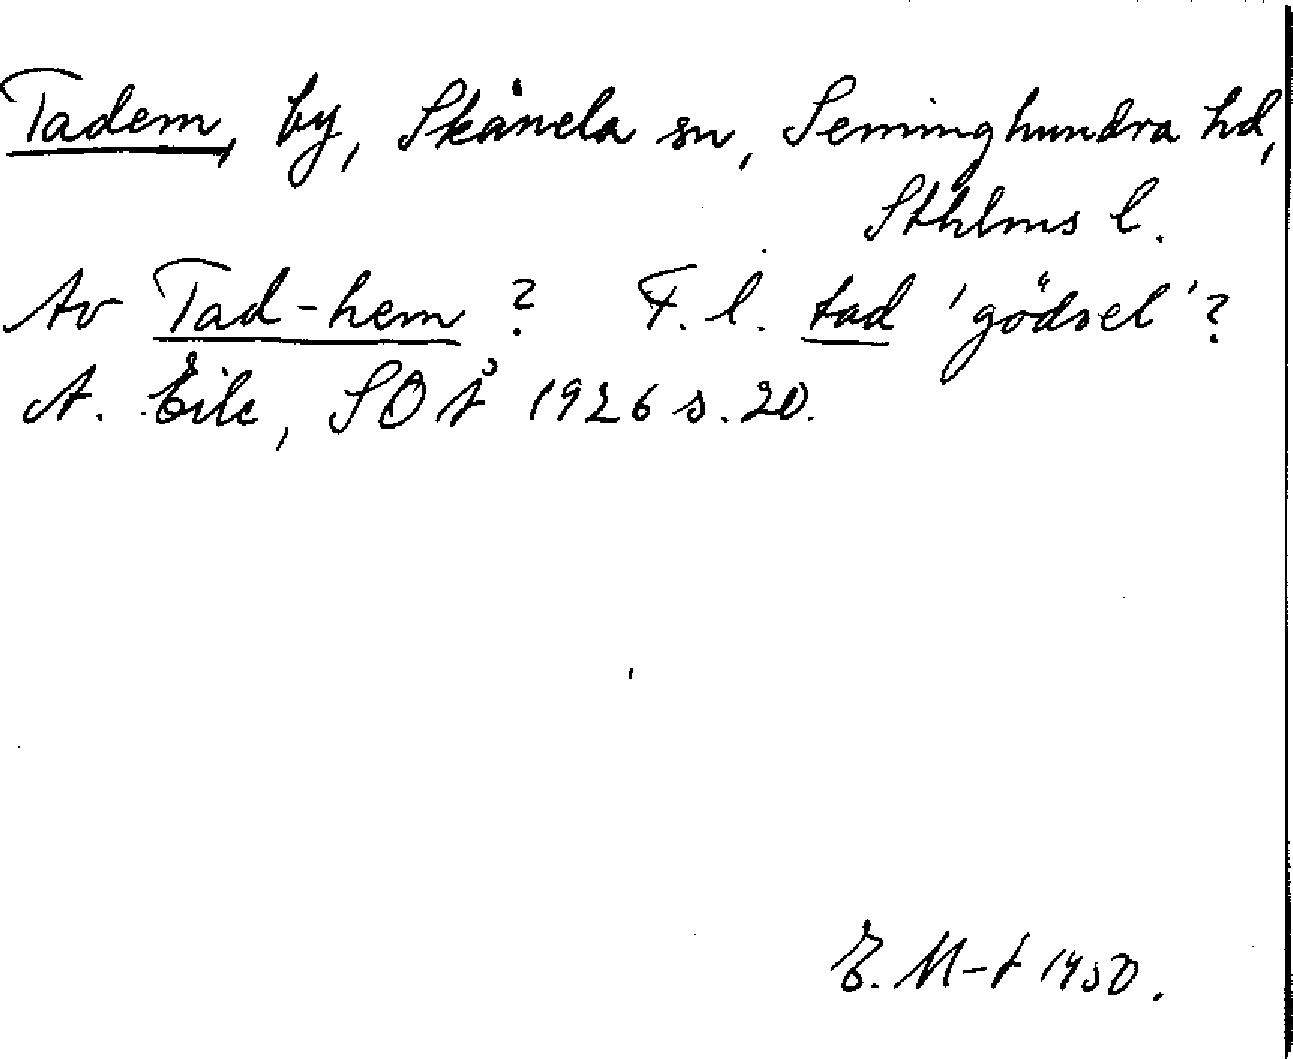 Tadem, by, Skånela sn, Seminghundra hd,
Sthlms l.
Av Tad-hem ? F. l. tad 'gödsel'?
A. Eile, SOÅ 1926 s. 20.
E. M-t 1950.